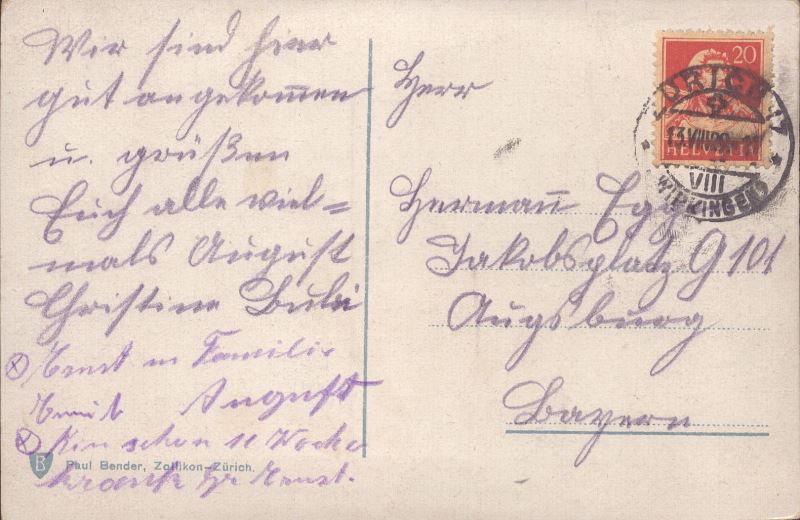 Wir sind hier
gut angekom̄en
u. grüßen
Euch alle viel=
mals August
Christine Bubi
Ernst u Familie
August
Bin schon 11 Woche
krank Gr Ernst.
B
Paul Bender, Zollikon-Zürich.
20
HELVETIA
ZÜRICH 17
13.VIII
VIII
WIPKINGEN
Herr
Herman̄ Egg
Jakobsplatz G 101
Augsburg
Bayern